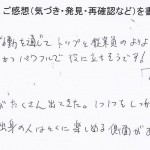 ご感想（気づき・発見・再確認など）を書
動を通じてトップと従業員の
パワフルで役に立ちそうです!
がたくさん出てきた。いつもしっか
出身の人はとくに楽しめる側面があ